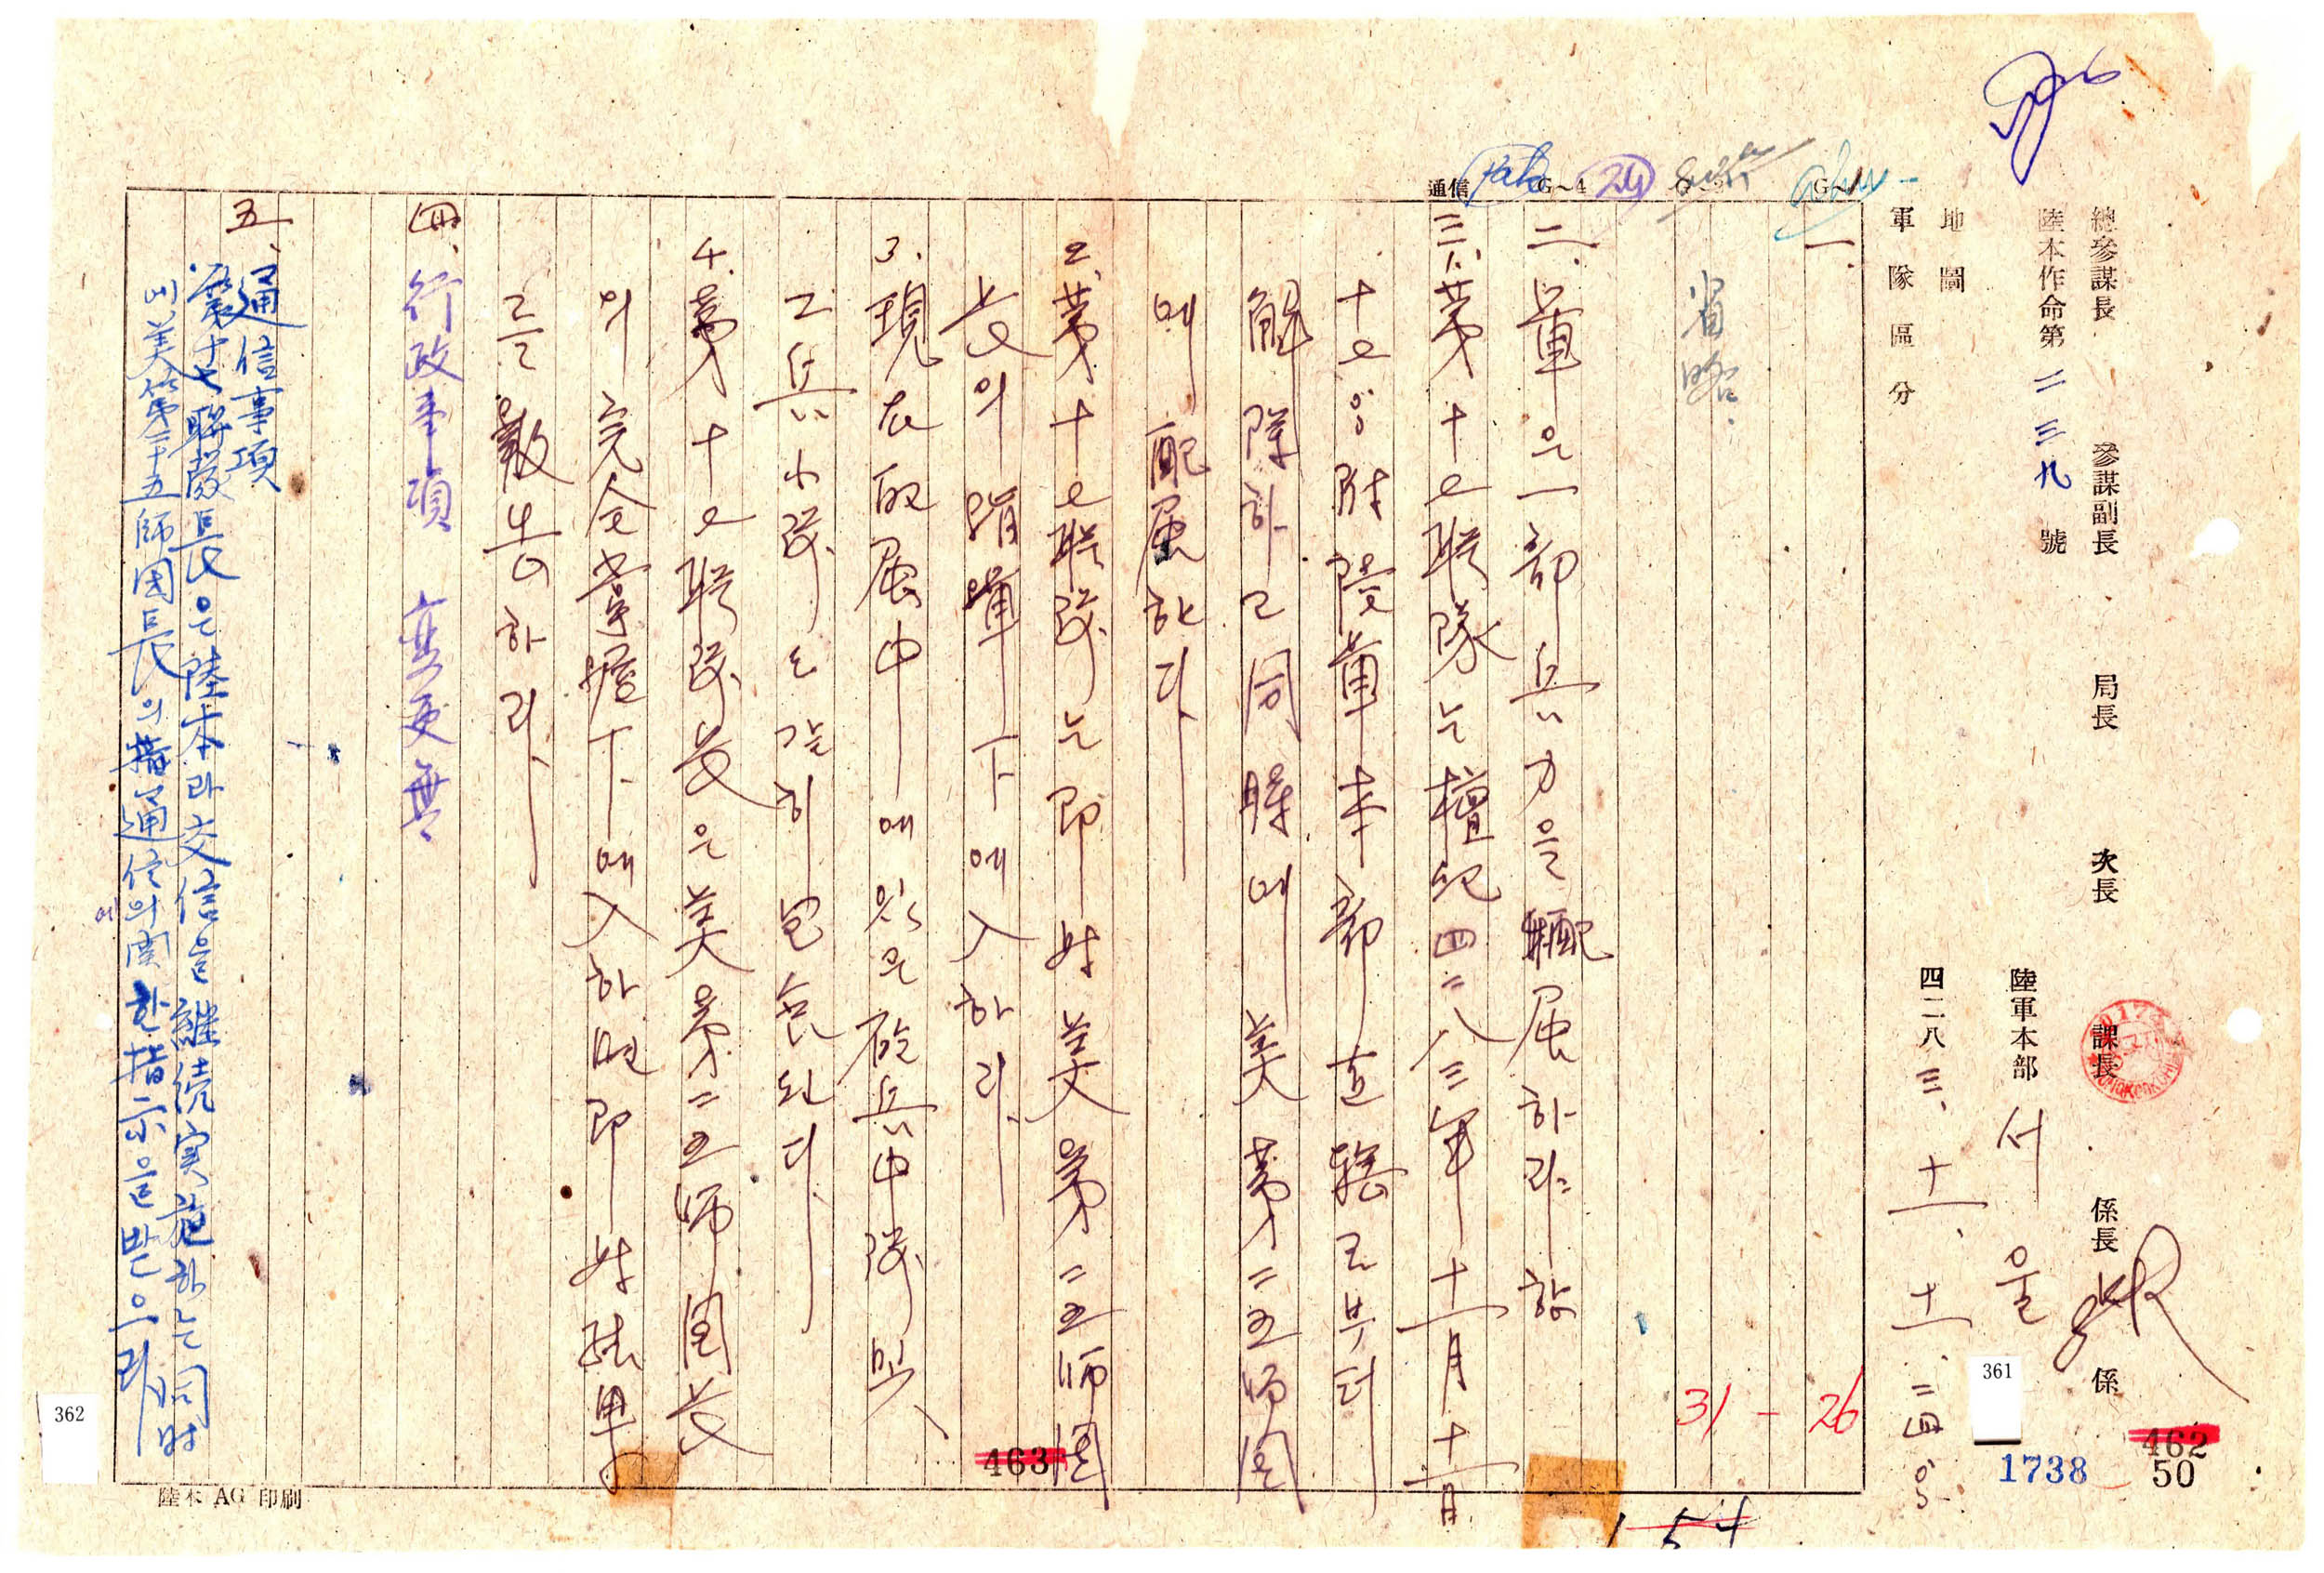 總參謀長 參謀副長 局長 次長 課長 係長 係
陸本作命第 二三九 號
陸軍本部 서울
地圖
四二八三、十一、十一、二四〇〇
軍隊區分
通信 G~4 24 G~1
一、
省略
31-26
二、軍은 一部兵力을 配属하려 함
三、1、第十七聯隊는 檀紀四二八三年十一月十一日
十七〇〇附 陸軍本部 直轄로부터
解除하고 同時에 美第二五師團
에 配属한다
2、第十七聯隊는 即時 美第二五師團
長의 指揮下에 入하라
3、現在 配属中에 있는 砲兵中隊 및
工兵小隊는 같이 包含된다
4、第十七聯隊長은 美第二五師團長
의 完全掌握下에 入하면 即時 結果
를 報告하라
四、行政事項 變更無
五、通信事項
第十七聯隊長은 陸本과 交信을 繼續実施하는 同時
에 美第二十五師團長의 通信에 関한 指示을 받으라
陸本 AG 印刷
361
362
462
463
1738
50
154